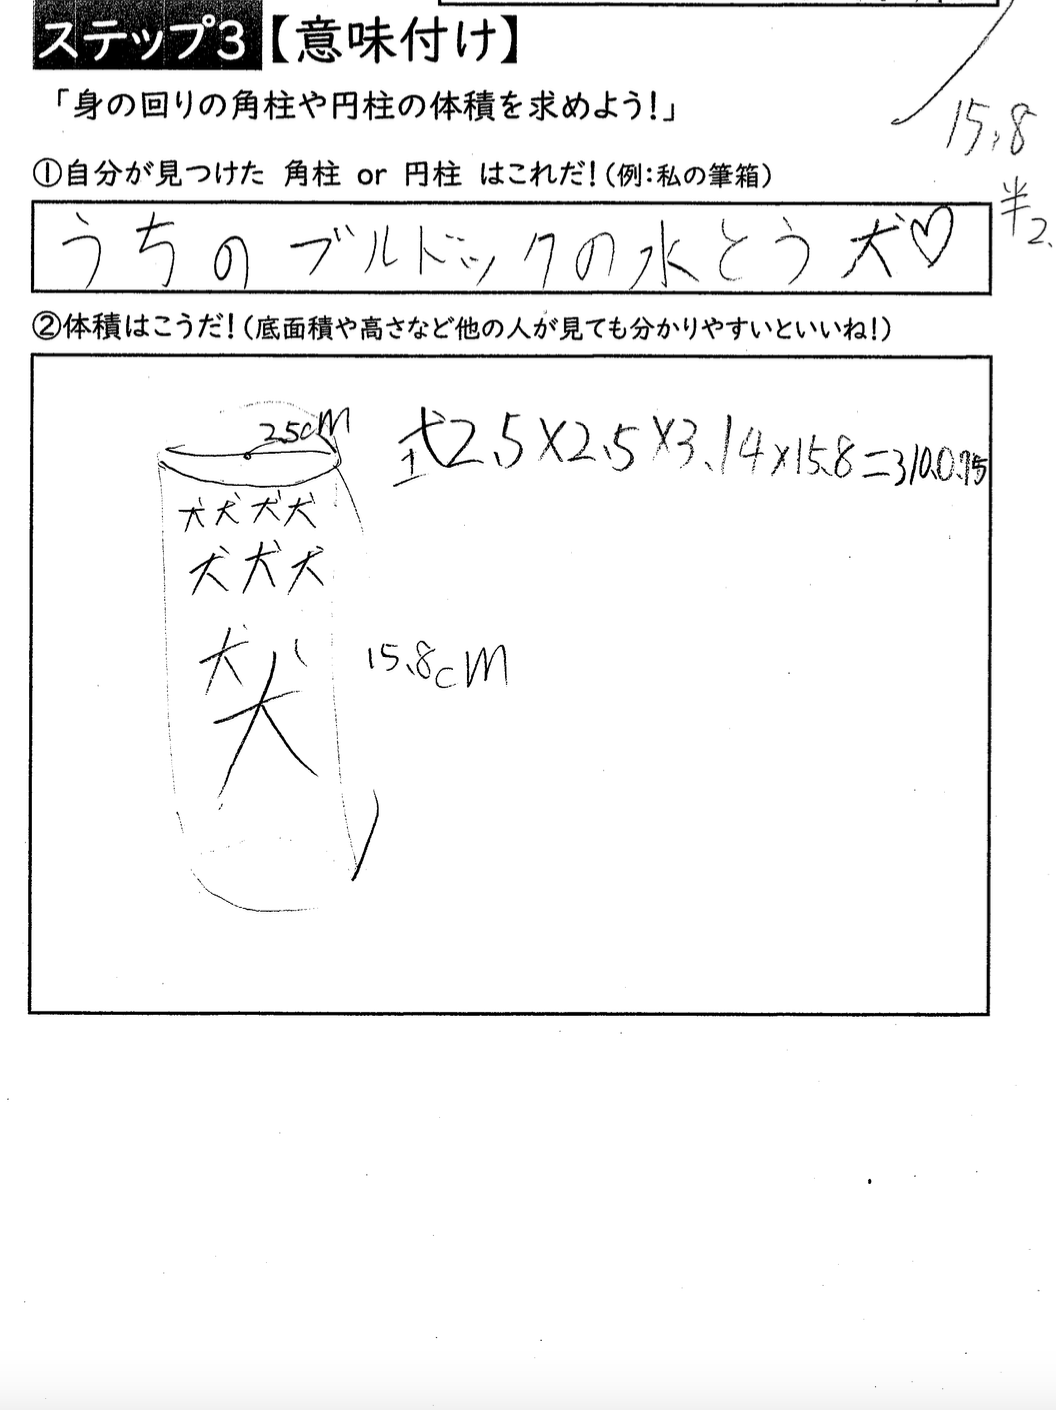 ステップ3【意味付け】
「身の回りの角柱や円柱の体積を求めよう!」
15.8
半2.
①自分が見つけた 角柱 or 円柱 はこれだ!(例:私の筆箱)
うちのブルドックの水とう犬♡
②体積はこうだ!(底面積や高さなど他の人が見ても分かりやすいといいね!)
2.5cm
式2.5×2.5×3.14×15.8=310.0.75
犬犬犬犬
犬犬犬
犬
犬
15.8cm